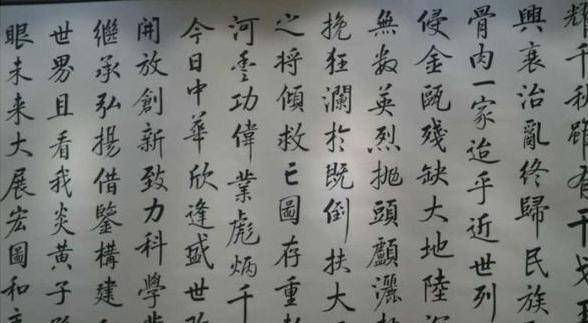 千秋雖有干
興衰治亂終歸民族
骨肉一家迨乎近世列
侵金甌殘缺大地陸
無数英烈抛頭顱灑
挽狂瀾於既倒扶大
之將傾救亡圖存重
河壹功偉業彪炳千
今日中華欣逢盛世
開放創新致力科學
繼承弘揚借鑒構建
世界且看我炎黄子
眼未来大展宏圖和